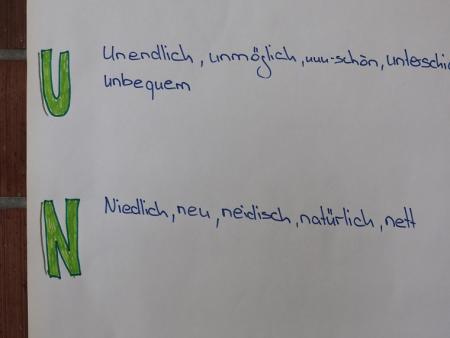 U
Unendlich, unmöglich, uuu-schön, unterschie
unbequem
N
Niedlich, neu, neidisch, natürlich, nett